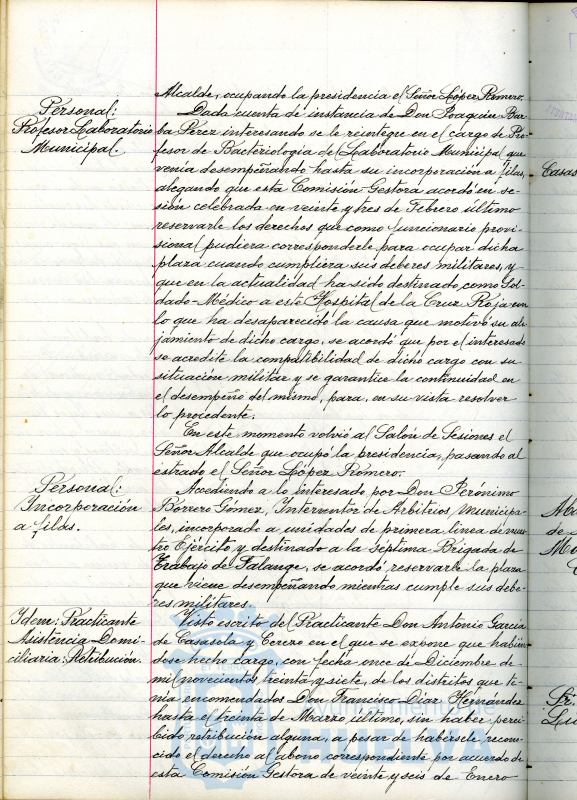 Alcalde, ocupando la presidencia el Señor López Romero.
Personal:
Profesor Laboratorio
Municipal.
Dada cuenta de instancia de Don Joaquin Bar-
ba Pérez interesando se le reintegre en el cargo de Pro-
fesor de Bacteriología del Laboratorio Municipal que
venía desempeñando hasta su incorporación a filas,
alegando que esta Comisión Gestora acordó en se-
sión celebrada en veinte y tres de Febrero último
reservarle los derechos que como funcionario provi-
sional pudiera corresponderle para ocupar dicha
plaza cuando cumpliera sus deberes militares, y
que en la actualidad ha sido destinado como Sol-
dado-Médico a este Hospital de la Cruz Roja con
lo que ha desaparecido la causa que motivó su ale-
jamiento de dicho cargo, se acordó que por el interesado
se acredite la compatibilidad de dicho cargo con su
situación militar y se garantice la continuidad en
el desempeño del mismo, para, en su vista resolver
lo procedente.
En este momento volvió al Salón de Sesiones el
Señor Alcalde que ocupó la presidencia, pasando al
estrado el Señor López Romero.
Personal:
Incorporación
a filas.
Accediendo a lo interesado por Don Jerónimo
Borrero Gómez, Interventor de Arbitrios Municipa-
les, incorporado a unidades de primera línea de nues-
tro Ejército y destinado a la Séptima Brigada de
Trabajo de Falange, se acordó reservarle la plaza
que viene desempeñando mientras cumple sus debe-
res militares.
Idem: Practicante
Asistencia Domi-
ciliaria: Retribución.
Visto escrito del Practicante Don Antonio García
de Casasola y Cerezo en el que se expone que habién-
dose hecho cargo, con fecha once de Diciembre de
mil novecientos treinta y siete, de los distritos que te-
nía encomendados Don Francisco Díaz Hernández
hasta el treinta de Marzo último, sin haber perci-
bido retribución alguna, a pesar de habérsele recono-
cido el derecho al abono correspondiente por acuerdo de
esta Comisión Gestora de veinte y seis de Enero
Ayuntamiento de
HUELVA
Casas
de